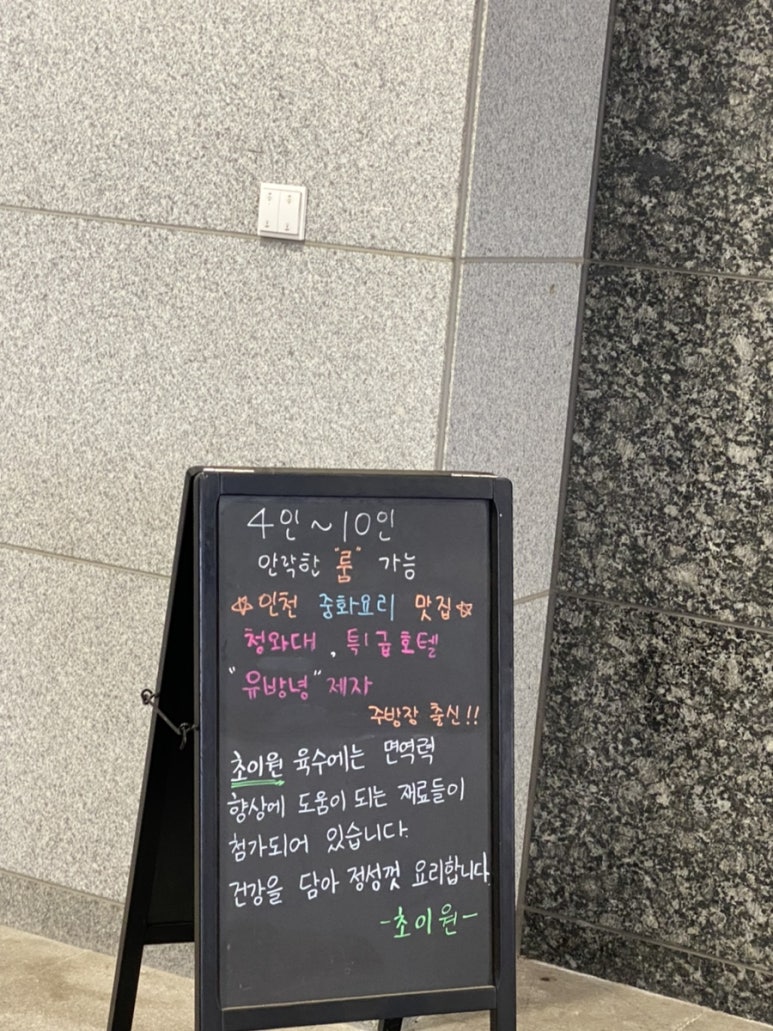 4인~10인
안락한 "룸" 가능
☆인천 중화요리 맛집☆
청와대, 특1급호텔
"유방녕" 제자
주방장 출신!!
초이원 육수에는 면역력
향상에 도움이 되는 재료들이
첨가되어 있습니다.
건강을 담아 정성껏 요리합니다
-초이원-